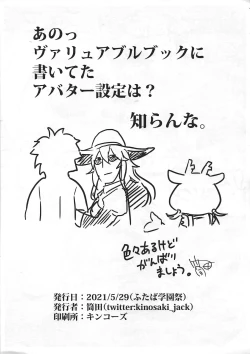 あのっ
ヴァリュアブルブックに
書いてた
アバター設定は？
知らんな。
色々あるけど
がんばり
ましょう。
発行日：2021/5/29(ふたば学園祭)
発行者：筒田(twitter:kinosaki_jack)
印刷所：キンコーズ